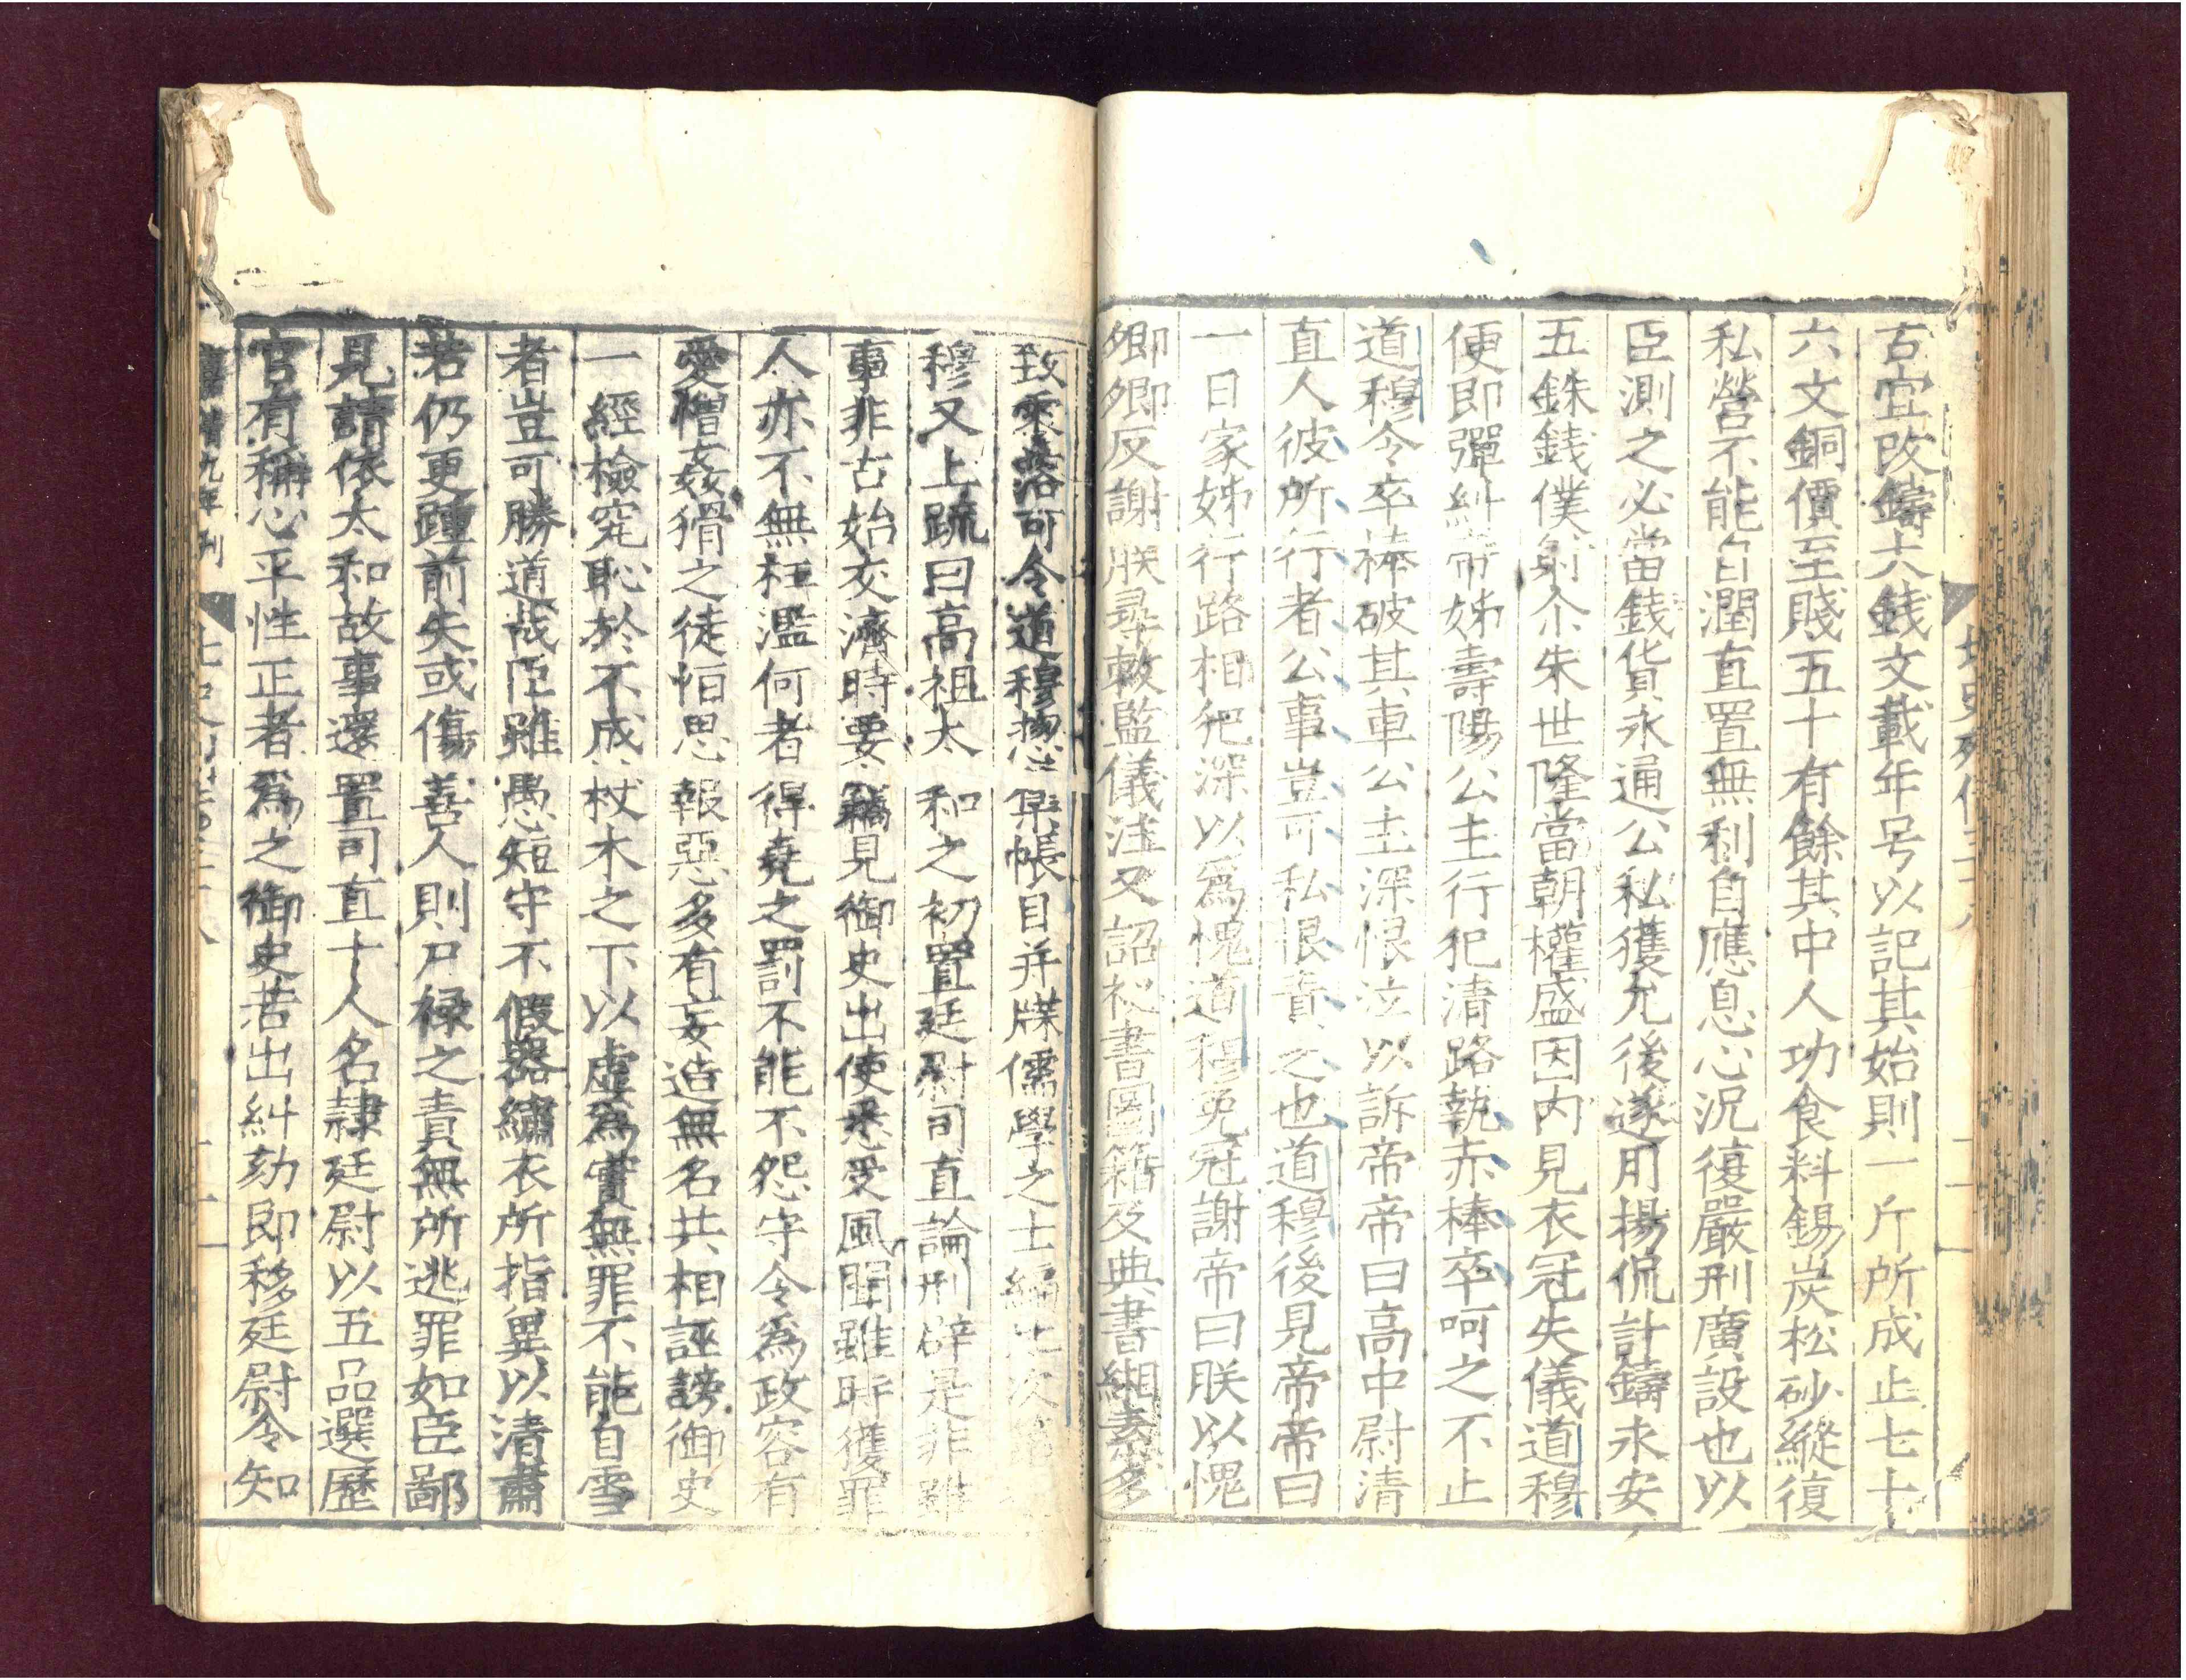 古宜改鑄大錢文載年号以記其始則一斤所成止七十
六文銅價至賤五十有餘其中人功食料錫炭松砂縱復
私營不能自潤直置無利自應息心況復嚴刑廣設也以
臣測之必當錢貨永通公私獲允後遂用楊侃計鑄永安
五銖錢僕射尒朱世隆當朝權盛因內見衣冠失儀道穆
便即彈糾帝姊壽陽公主行犯清路執赤棒卒呵之不止
道穆令卒棒破其車公主深恨泣以訴帝帝曰高中尉清
直人彼所行者公事豈可私恨責之也道穆後見帝帝曰
一日家姊行路相犯深以爲愧道穆免冠謝帝曰朕以愧
卿卿反謝朕尋敕監儀注又詔祕書圖籍及典書緗素多
致零落可令道穆揔集帳目并牒儒學之士編比次第
穆又上疏曰高祖太和之初置廷尉司直論刑辟是非雖
事非古始交濟時要竊見御史出使悉受風聞雖時獲罪
人亦不無枉濫何者得堯之罰不能不怨守令爲政容有
愛憎姦猾之徒恒思報惡多有妄造無名共相誣謗御史
一經檢究恥於不成杖木之下以虛爲實無罪不能自雪
者豈可勝道哉臣雖愚短守不假器繡衣所指異以清肅
若仍更踵前失或傷善人則尸祿之責無所逃罪如臣鄙
見請依太和故事還置司直十人名隷廷尉以五品選歷
官有稱心平性正者爲之御史若出糾劾即移廷尉令知